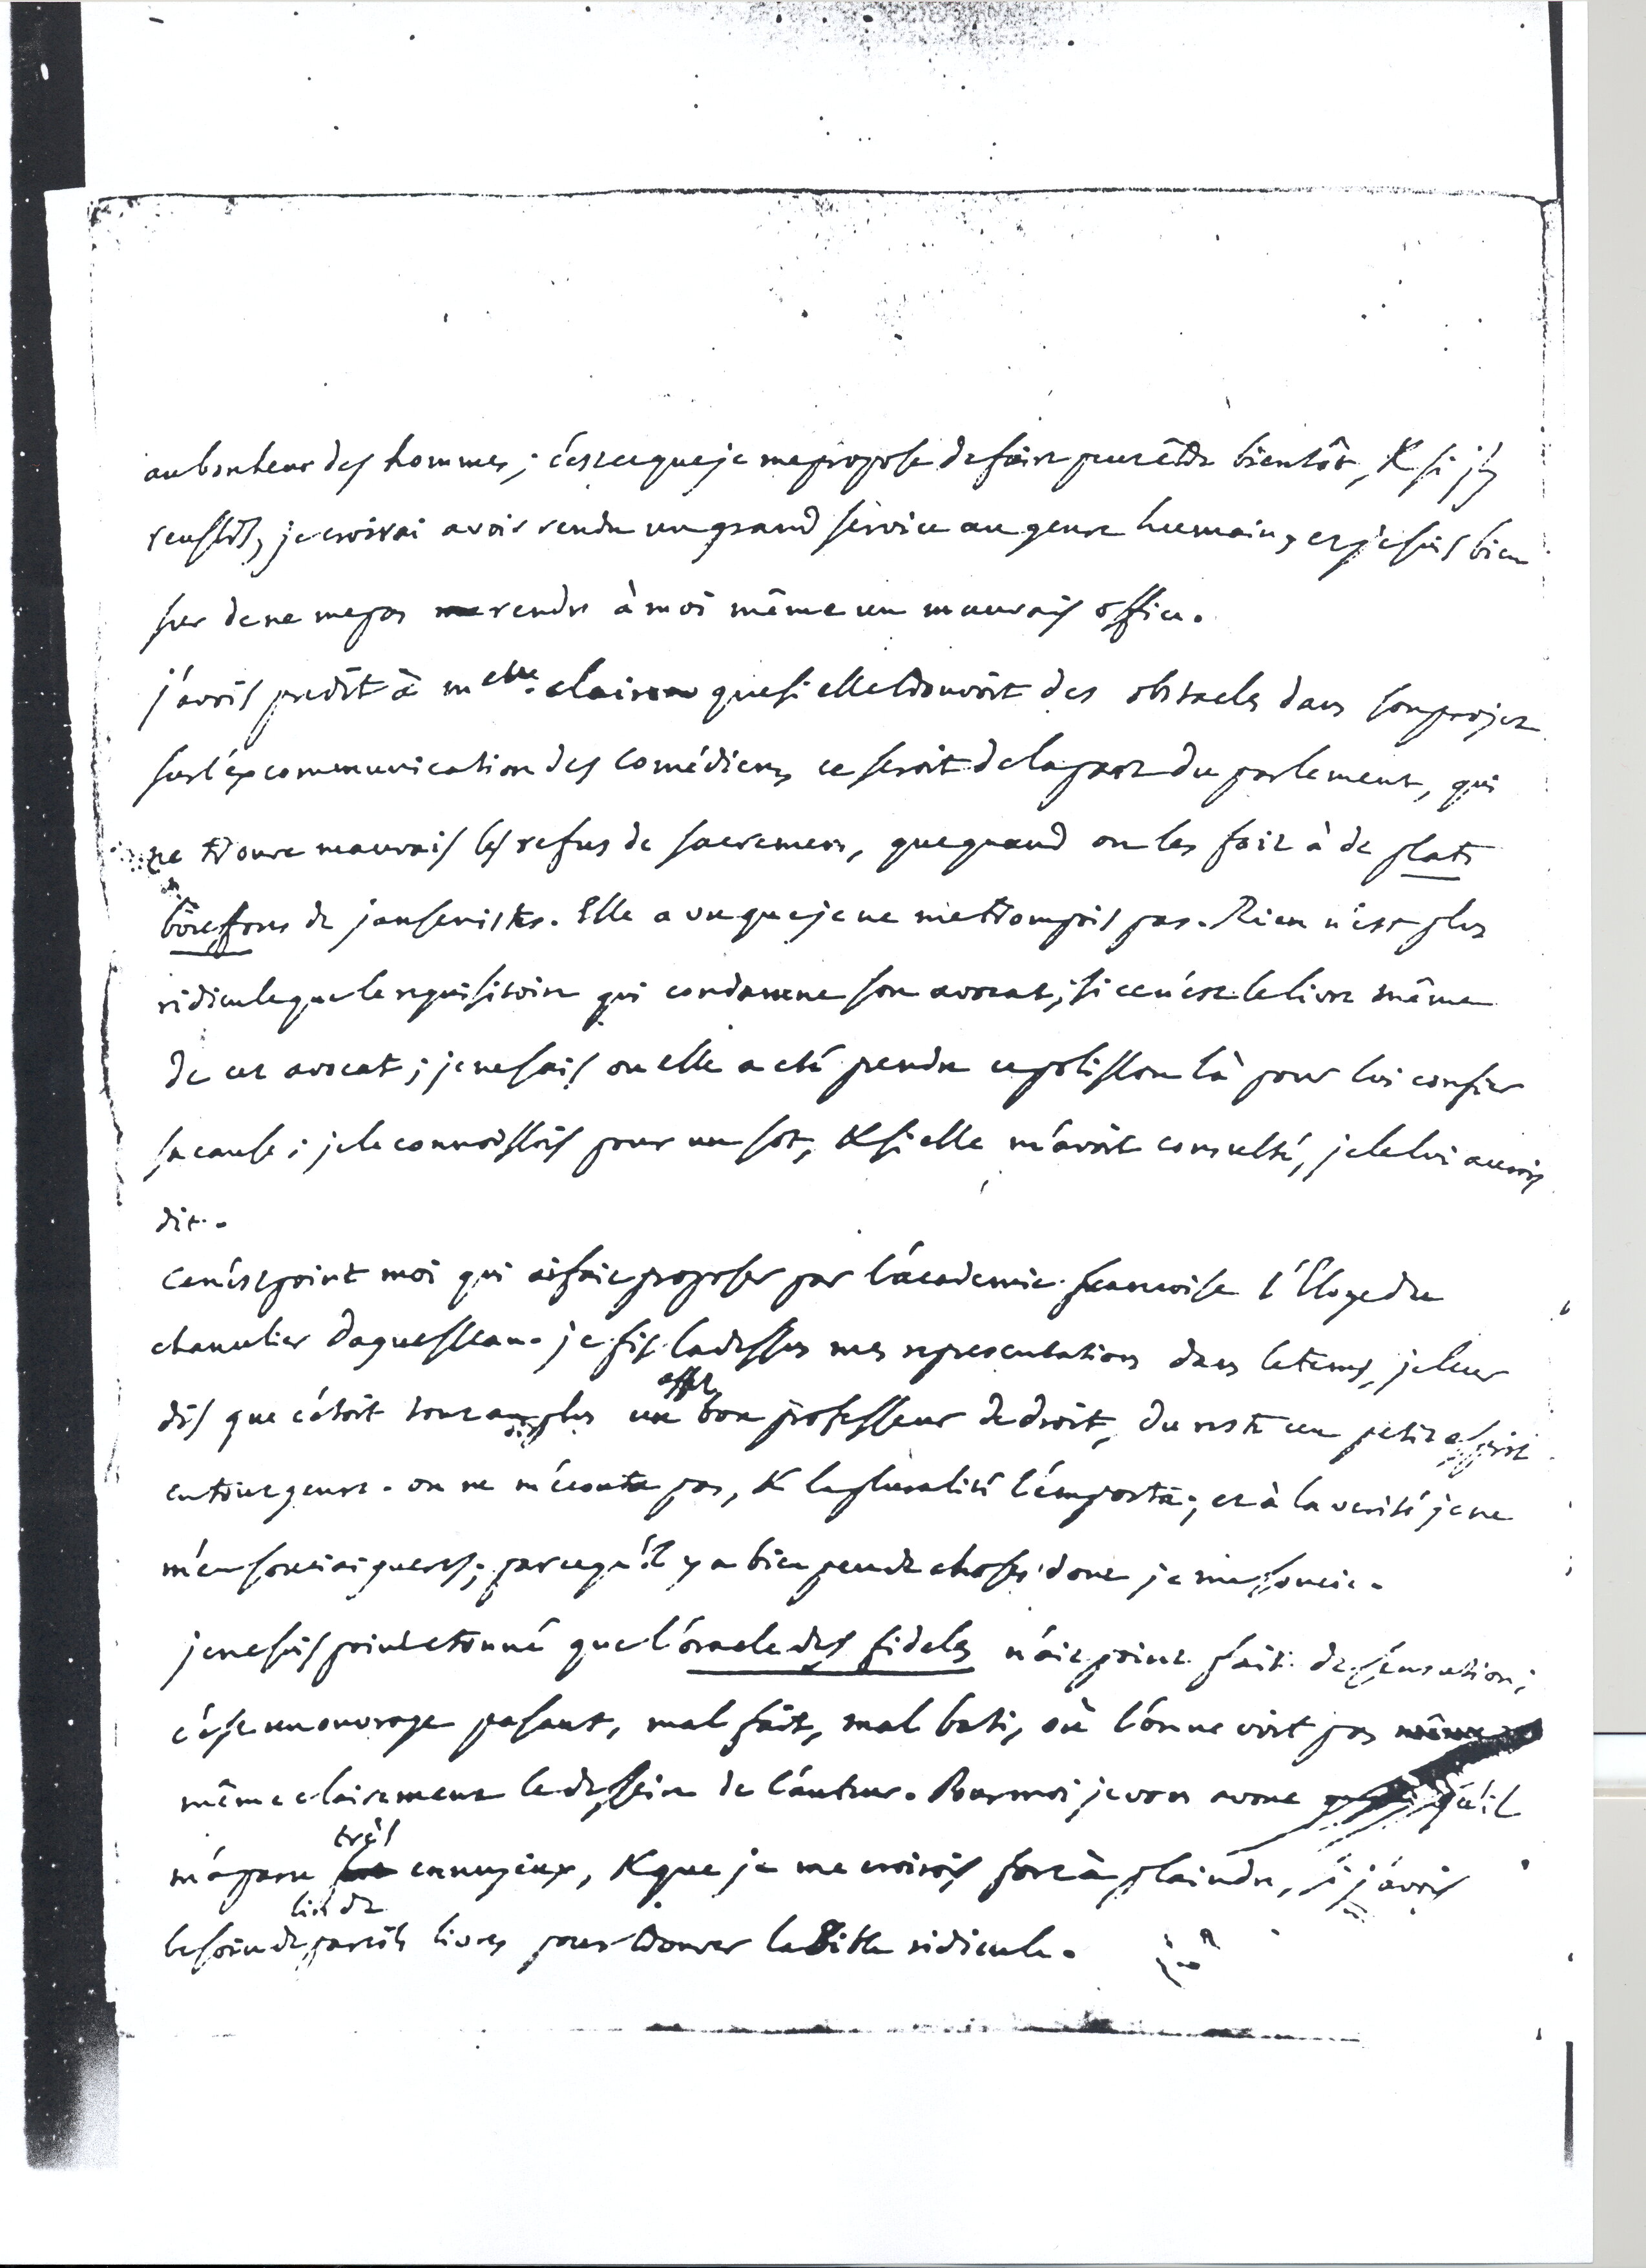 au bonheur des hommes ; c'est ce que je me propose de faire peut être bientôt, & si j'y
reussis, je croirai avoir rendu un grand service au genre humain, et je suis bien
sur de ne me pas rendre à moi même un mauvais office.
j'avois predit à melle. clairon que si elle trouvoit des obstacles dans son projet
sur l'excommunication des comédiens, ce seroit de la part du parlement, qui
ne trouve mauvais les refus de sacremens, que quand on les fait à de plats
de jansenistes. Elle a vu que je ne me trompois pas. Rien n'est plus
ridicule que le requisitoire qui condamne son avocat, si ce n'est le livre même
de cet avocat ; je ne sais ou elle a eté prendre ce polisson là pour lui confier
sa cause ; je le connoissois pour un sot, & si elle m'avoit consulté, je le lui aurois
dit.
ce n'est point moi qui ai fait proposer par l'academie francoise l'Eloge du
chancelier daguesseau. je fis la dessus mes representations dans le tems, je leur
dis que c'étoit tout au plus un assez bon professeur de droit, du reste un petit esprit
en tout genre. on ne m'écouta pas, & la pluralité l'emporta ; et à la verité je ne
m'en souciai gueres, parcequ'il y a bien peu de choses dont je me soucie.
je ne suis point etonné que l'oracle des fideles n'ait point fait de sensation ;
c'est un ouvrage pesant, mal fait, mal bati, où l'on ne voit pas
même clairement le dessein de l'auteur. Pour moi je vous avoue qu'il
m'a paru très ennuyeux, & que je me croirois fort à plaindre, si j'avois
besoin de lire de pareils livres pour trouver la Bible ridicule.